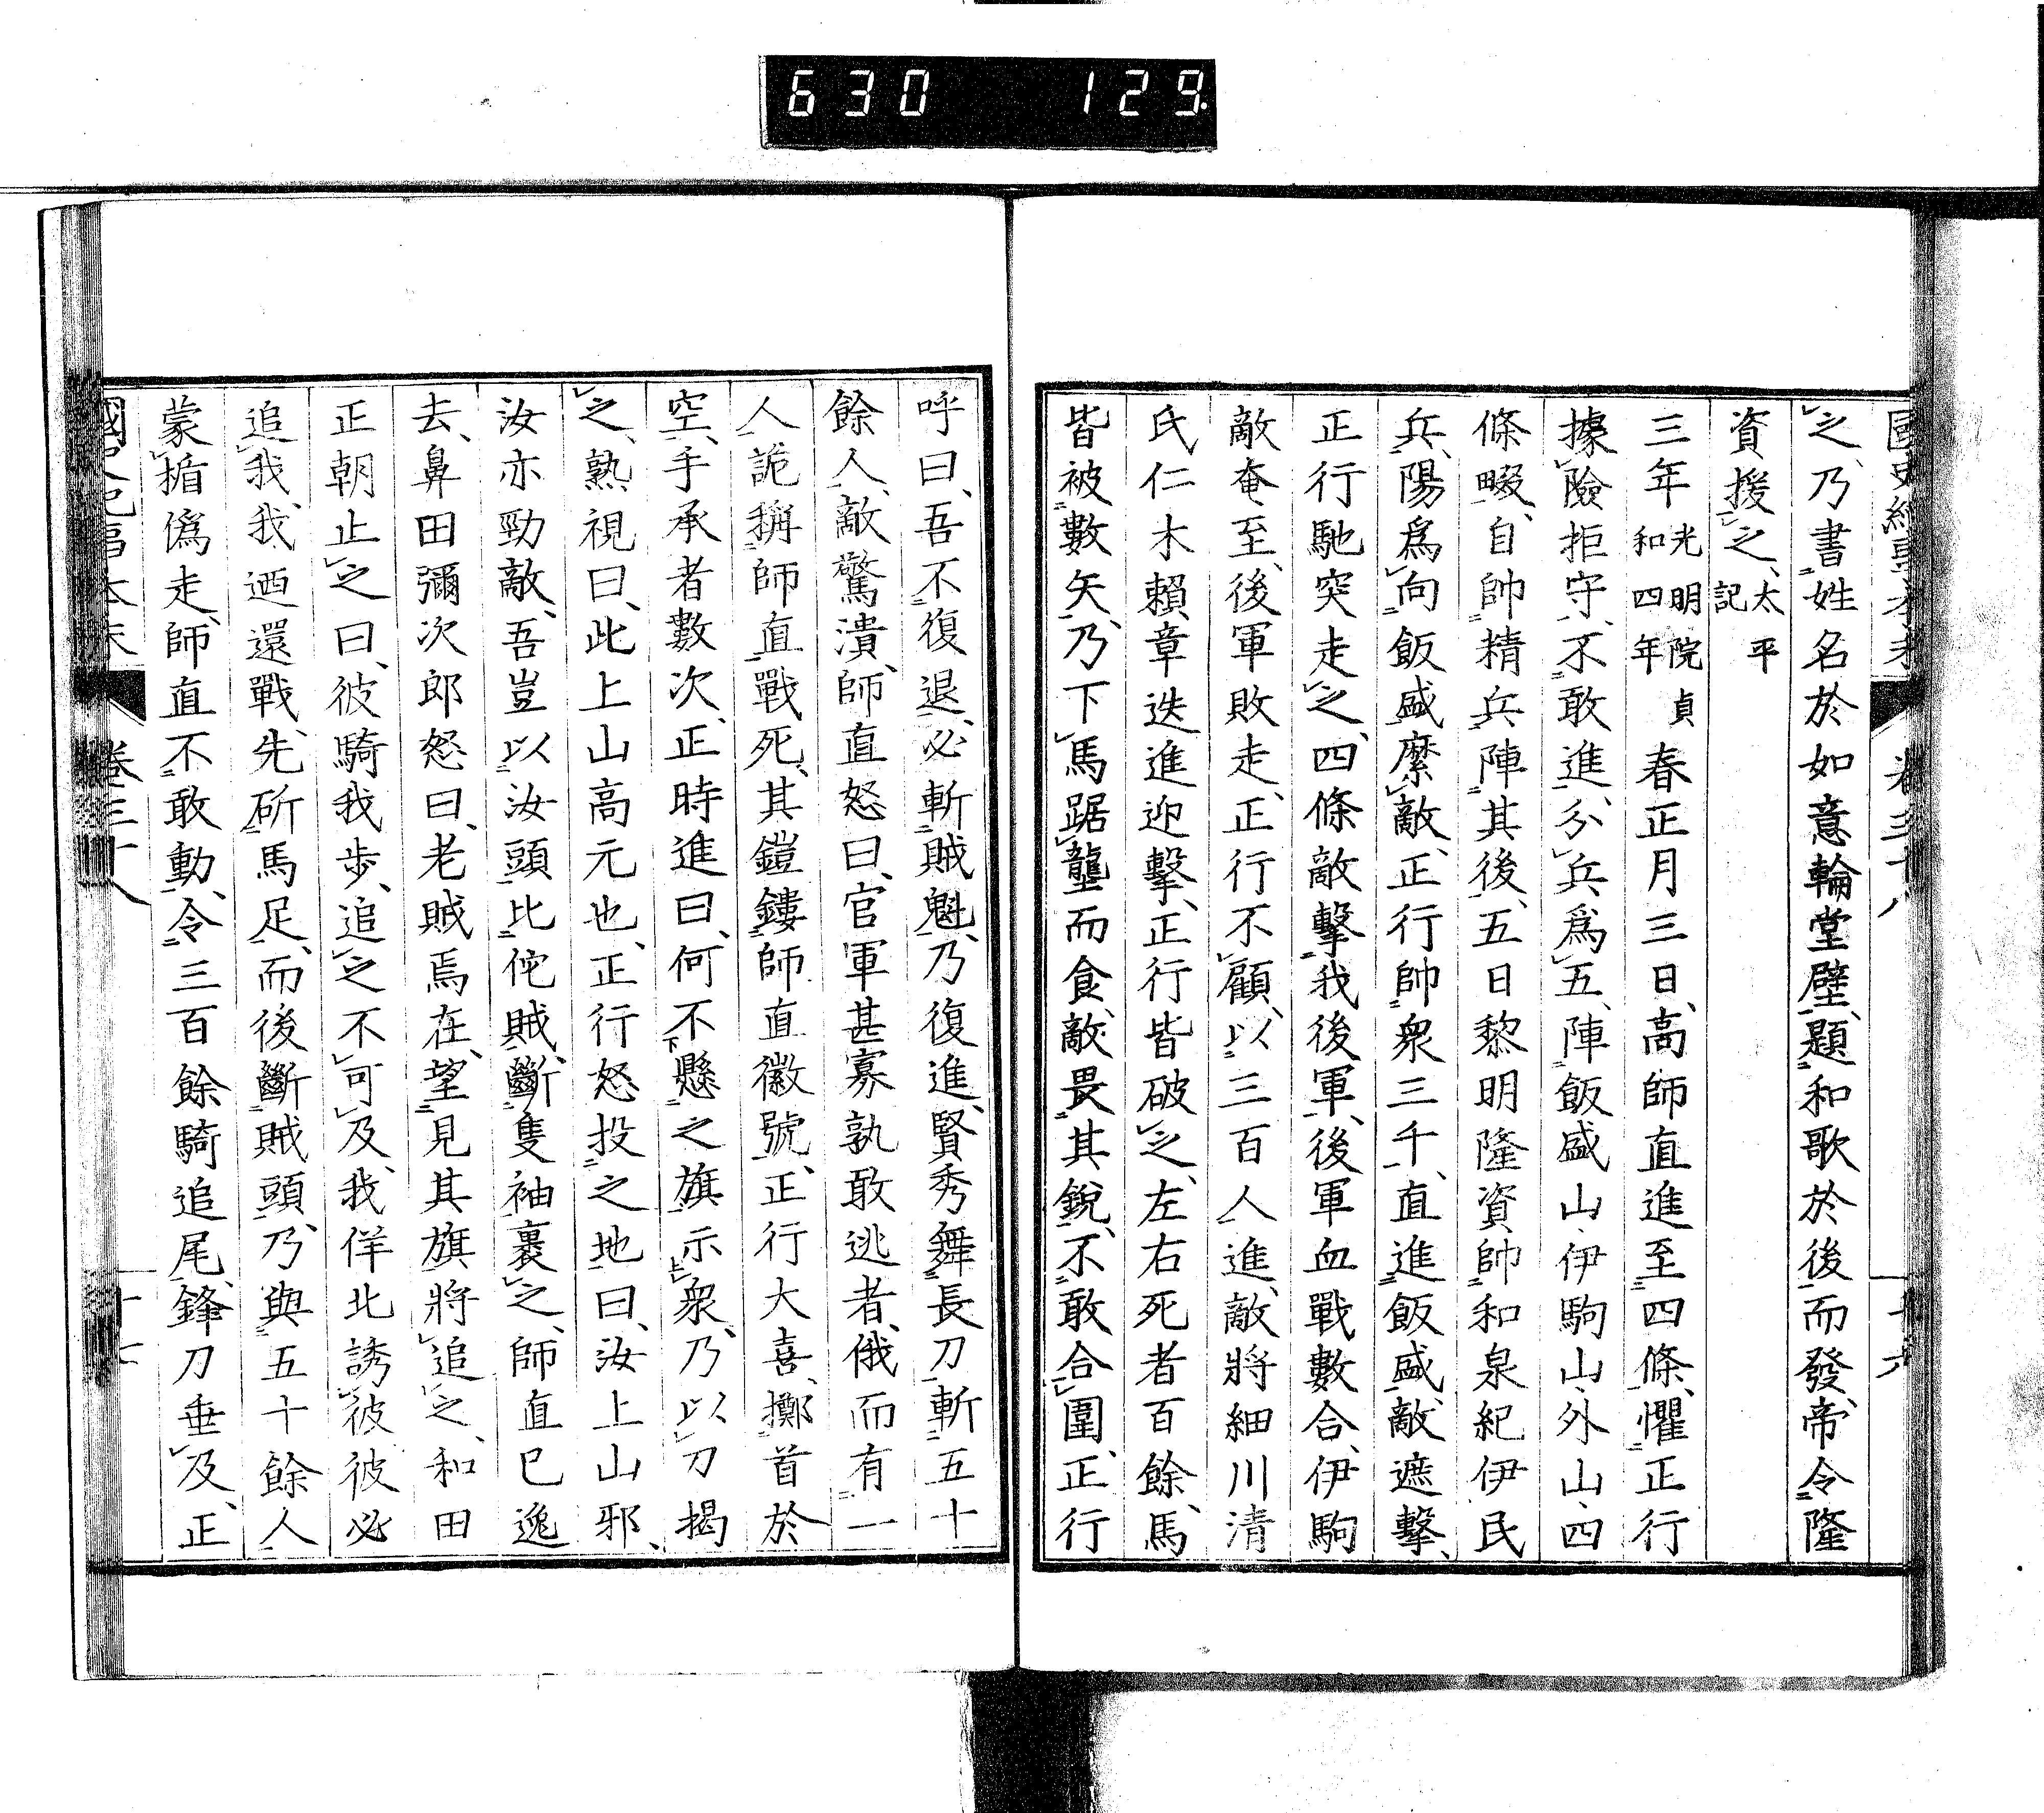 630 129
之、乃書姓名於如意輪堂壁、題和歌於後而發、帝令隆
資援之、太平記
三年光明院貞和四年春正月三日、高師直進至四條、懼正行
據險拒守、不敢進、分兵爲五、陣飯盛山、伊駒山、外山、四
條畷、自帥精兵陣其後、五日黎明隆資帥和泉紀伊民
兵、陽爲向飯盛縻敵、正行帥衆三千、直進飯盛、敵遮擊、
正行馳突走之、四條敵擊我後軍、後軍血戰數合、伊駒
敵奄至、後軍敗走、正行不顧、以三百人進、敵將細川清
氏仁木賴章迭進迎擊、正行皆破之、左右死者百餘、馬
皆被數矢、乃下馬踞壟而食、敵畏其銳、不敢合圍、正行
呼曰、吾不復退、必斬賊魁、乃復進、賢秀舞長刀斬五十
餘人、敵驚潰、師直怒曰、官軍甚寡孰敢逃者、俄而有一
人詭稱師直戰死、其鎧鏤師直徽號、正行大喜、擲首於
空、手承者數次、正時進曰、何不懸之旗示衆、乃以刀揭
之、熟視曰、此上山高元也、正行怒投之地曰、汝上山邪、
汝亦勁敵、吾豈以汝頭比佗賊、斷隻袖裹之、師直已逸
去、鼻田彌次郎怒曰、老賊焉在、望見其旗將追之、和田
正朝止之曰、彼騎我步、追之不可及、我佯北誘彼彼必
追我、我迺還戰、先斫馬足、而後斷賊頭、乃與五十餘人
蒙楯僞走、師直不敢動、令三百餘騎追尾、鋒刀垂及、正
卷三十八